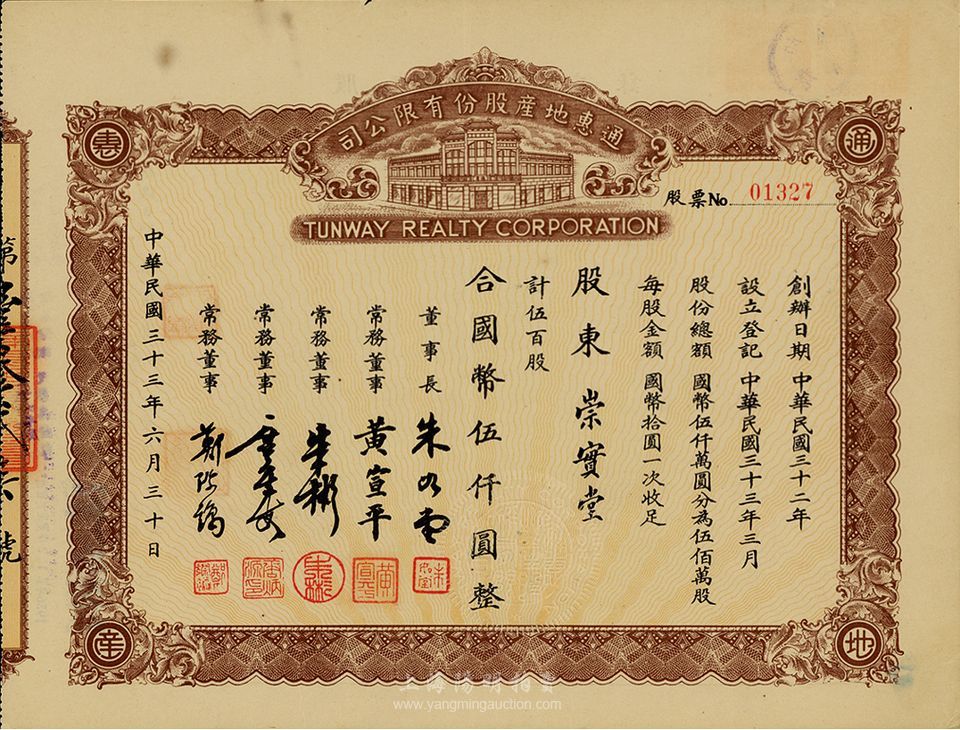 通惠地產股份有限公司
TUNWAY REALTY CORPORATION
通
惠
地
產
股票No. 01327
創辦日期 中華民國三十二年
設立登記 中華民國三十三年三月
股份總額 國幣伍仟萬圓分為伍佰萬股
每股金額 國幣拾圓一次收足
股東 崇實堂
計伍百股
合國幣伍仟圓整
董事長 朱
常務董事 黃宣平
常務董事 朱彬
常務董事
常務董事
中華民國三十三年六月三十日
第
號
上海陽明拍賣
www.yangmingauction.com